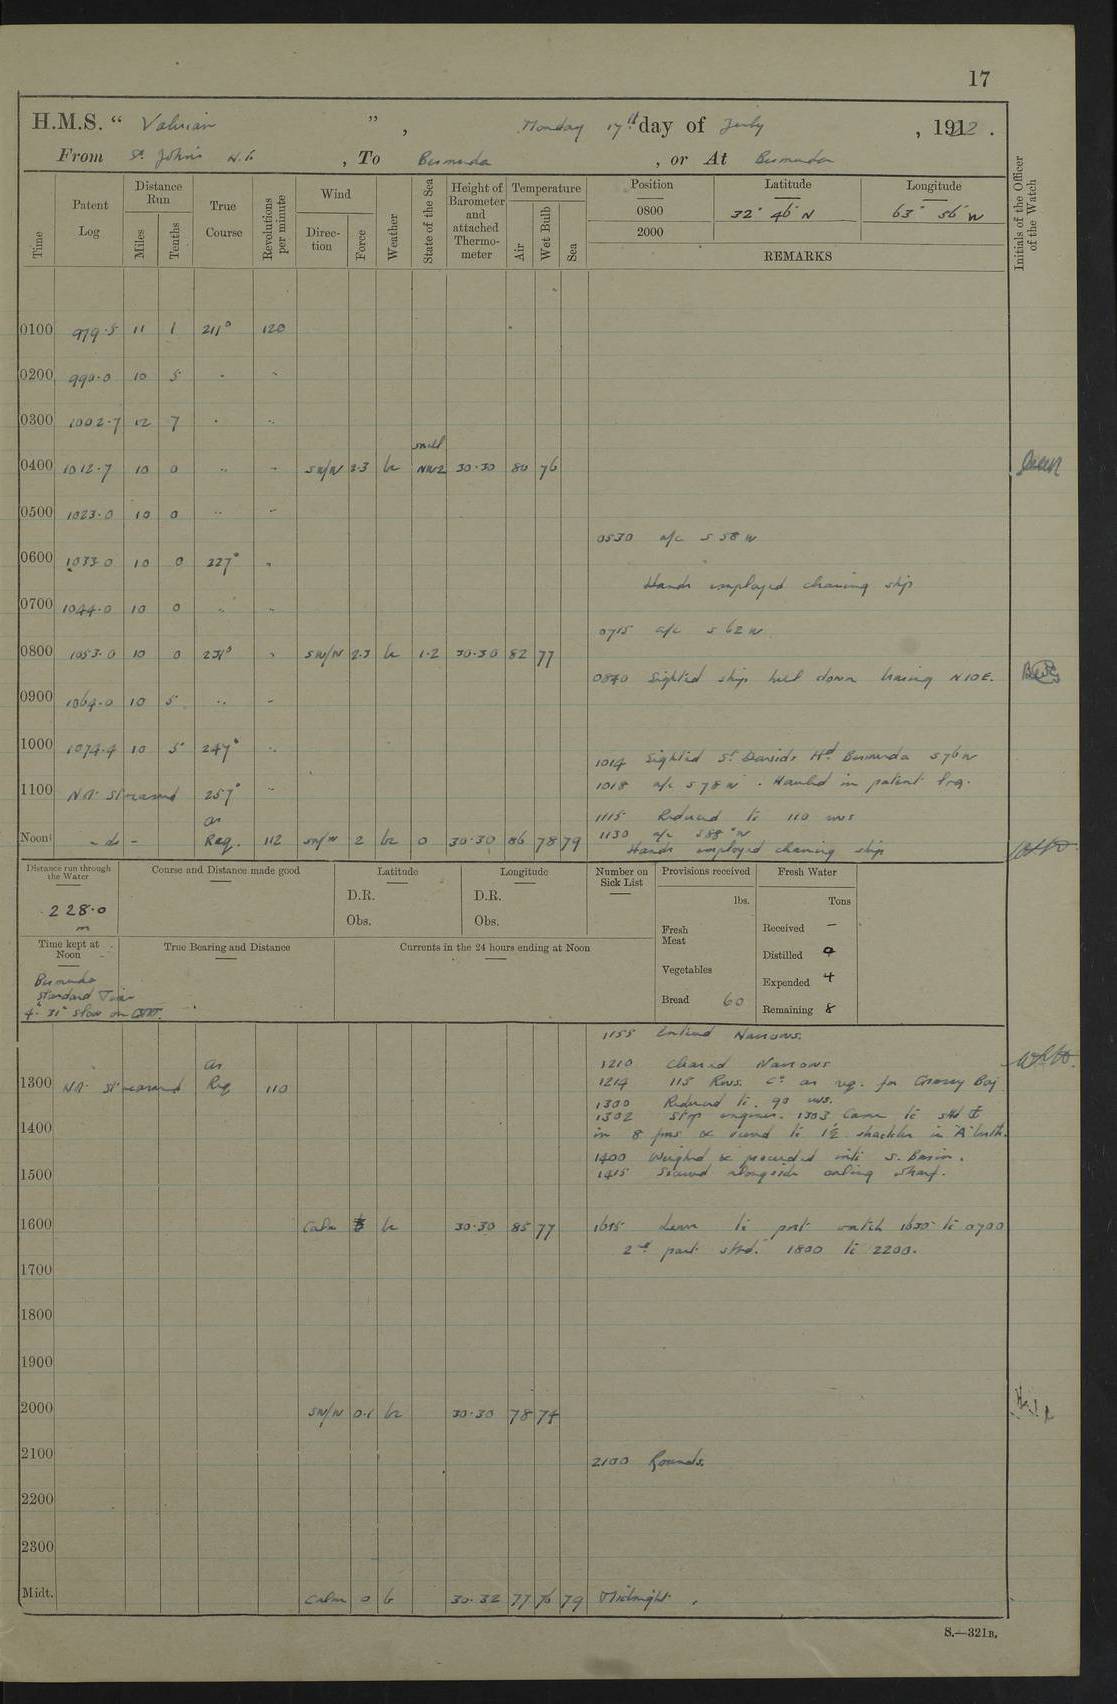 17
H.M.S. “ Valerian ” , Monday 17th day of July , 1922 .
From St. John's N.F. , To Bermuda , or At Bermuda
Time
Patent Log
Distance Run
Miles
Tenths
True Course
Revolutions per minute
Wind
Direction
Force
Weather
State of the Sea
Height of Barometer and attached Thermometer
Temperature
Air
Wet Bulb
Sea
Position Latitude Longitude
0800 32° 46' N 63° 56' W
2000
REMARKS
Initials of the Officer of the Watch
0100 979.5 11 1 211° 120
0200 990.0 10 5 " "
0300 1002.7 12 7 " "
swell
0400 1012.7 10 0 " " SW/W 2.3 bc NW2 30.30 80 76
0500 1023.0 10 0 " "
0530 a/c S 58 W
0600 1033.0 10 0 227° "
Hands employed cleaning ship
0700 1044.0 10 0 " "
0715 a/c S 62 W
0800 1053.0 10 0 231° " SW/W 2.3 bc 1.2 30.30 82 77
0840 Sighted ship hull down bearing N10E.
0900 1064.0 10 5 " "
1000 1074.4 10 5 247° "
1014 Sighted St Davids Hd Bermuda S76W
1018 a/c S78W . Hauled in patent log.
1100 Not streamed 257° "
1115 Reduced to 110 revs
1130 a/c S88°W
Noon - do - as Req. 112 SW/W 2 bc 0 30.30 86 78 79
Hands employed cleaning ship
Distance run through the Water
228.0
m
Course and Distance made good
Latitude
D.R.
Obs.
Longitude
D.R.
Obs.
Number on Sick List
Provisions received
lbs.
Fresh Meat
Vegetables
Bread 60
Fresh Water
Tons
Received —
Distilled
Expended 4
Remaining 8
Time kept at Noon
Bermuda
Standard Time
4h 31m slow on GMT.
True Bearing and Distance
Currents in the 24 hours ending at Noon
1155 Entered Narrows.
1210 Cleared Narrows
1214 115 Revs. Co as req. for Grassy Bay
1300 Not streamed as Req 110
1300 Reduced to 90 revs.
1302 Stop engines. 1303 Came to stbd
in 8 fms & veered to 1½ shackles in 'A' berth.
1400
1400 Weighed & proceeded into S. Basin.
1415 Secured alongside oiling wharf.
1500
1600 Calm bc 30.30 85 77
Leave to port watch 1630 to 0700
2nd part stbd. 1800 to 2200.
1700
1800
1900
2000 SW/W 0.1 bc 30.30 78 74
2100 2100 Rounds.
2200
2300
Midt. Calm 0 b 30.32 77 76 79 Midnight.
S.—321B.